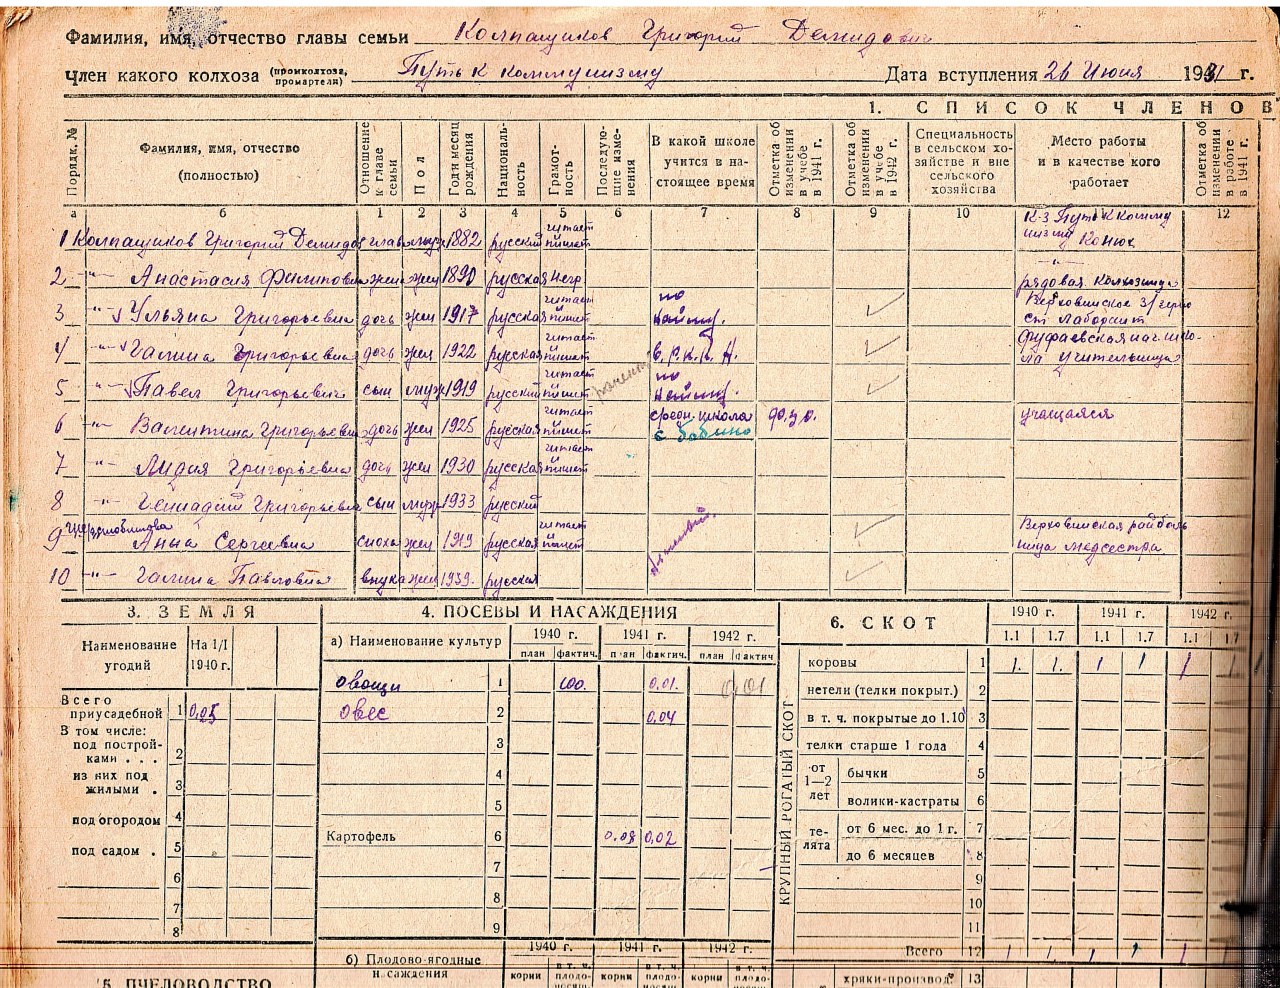 Фамилия, имя, отчество главы семьи Колпащиков Григорий Демидович
Член какого колхоза (промколхоза, промартели) Путь к коммунизму Дата вступления 26 Июня 1931 г.
1. СПИСОК ЧЛЕНОВ
Порядк. № Фамилия, имя, отчество (полностью) Отношение к главе семьи Пол Год и месяц рождения Националь-ность Грамот-ность Последую-щие изме-нения В какой школе учится в на-стоящее время Отметка об изменении в учебе в 1941 г. Отметка об изменении в учебе в 1942 г. Специальность в сельском хо-зяйстве и вне сельского хозяйства Место работы и в качестве кого работает Отметка об изменении в работе в 1941 г.
а б 1 2 3 4 5 6 7 8 9 10 11 12
1 Колпащиков Григорий Демидов глава муж 1882 русский читает пишет К-з Путь к комму низму Конюх
2 -"- Анастасия Филиповна жена жен 1890 русская негр -"- рядовая колхозница
3 -"- Ульяна Григорьевна дочь жен 1917 русская читает пишет по найму. Верховинское лаборант
4 -"- Галина Григорьевна дочь жен 1922 русская читает пишет Фуфаевская нач шко-ла учительница
5 -"- Павел Григорьевич сын муж 1919 русский читает пишет по найму.
6 -"- Валентина Григорьевна дочь жен 1925 русская читает пишет средн. школа с Бобино учащаяся
7 -"- Лидия Григорьевна дочь жен 1930 русская читает пишет
8 -"- Геннадий Григорьевич сын муж 1933 русский
9 Анна Сергеевна сноха жен 1919 русская читает пишет Верховинская райболь ница медсестра
10 -"- Галина Павловна внука жен 1939. русская
3. ЗЕМЛЯ
Наименование угодий На 1/I 1940 г.
Всего приусадебной 1 0,25
В том числе:
под построй-ками . . . 2
из них под жилыми . 3
под огородом 4
под садом . 5
6
7
8
4. ПОСЕВЫ И НАСАЖДЕНИЯ
а) Наименование культур 1940 г. 1941 г. 1942 г.
план фактич. план фактич. план фактич
овощи 1 100. 0.01. 0,01
овес 2 0,04
3
4
5
Картофель 6 0.08 0,02
7
8
9
б) Плодово-ягодные насаждения 1940 г. 1941 г. 1942 г.
корни в т. ч. плодо-носящ. корни в т. ч. плодо-носящ. корни в т. ч. плодо-носящ.
6. СКОТ 1940 г. 1941 г. 1942 г.
1.1 1.7 1.1 1.7 1.1 1.7
КРУПНЫЙ РОГАТЫЙ СКОТ
коровы 1 1. 1. 1 1 1 1
нетели (телки покрыт.) 2
в т. ч. покрытые до 1.10 3
телки старше 1 года 4
от 1—2 лет бычки 5
волики-кастраты 6
те-лята от 6 мес. до 1 г. 7
до 6 месяцев 8
9
10
11
Всего 12 1 1 1 1 1 1
хряки-производ. 13
5. ПЧЕЛОВОДСТВО